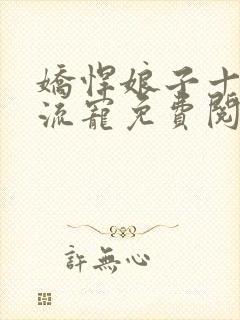 嬌悍娘子十
流寵免費閱
許無心